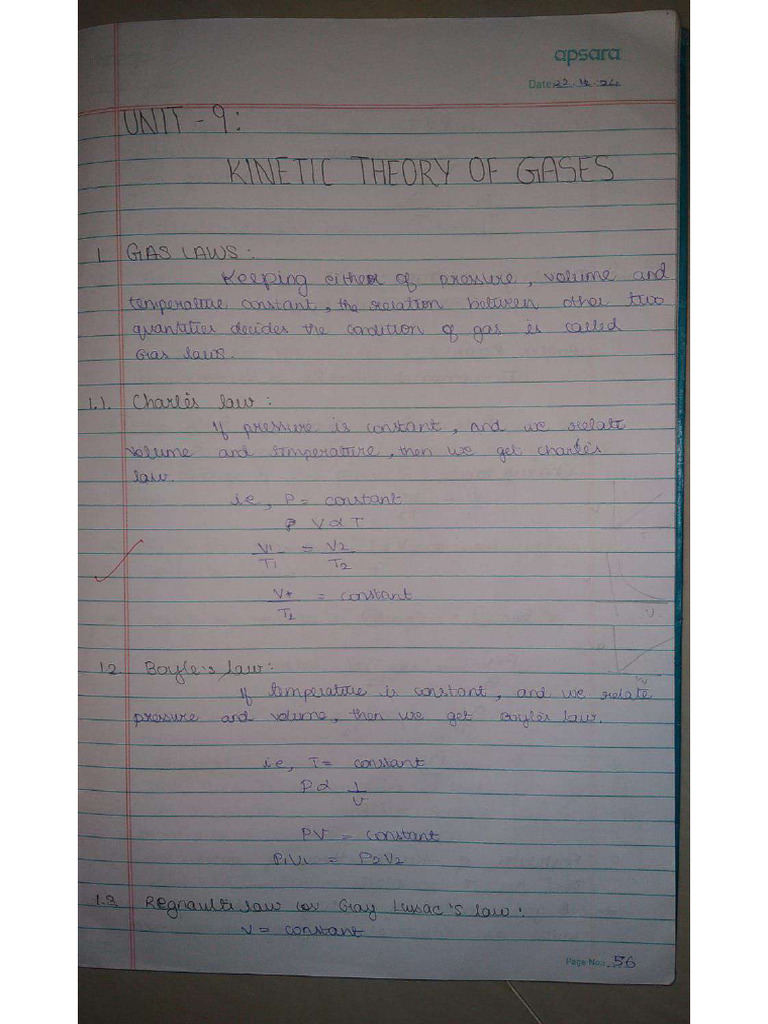 apsara
Date: 22.12.24
UNIT - 9:
KINETIC THEORY OF GASES
1. GAS LAWS:
Keeping either of pressure, volume and
temperature constant, the relation between other two
quantities decides the condition of gas is called
Gas laws.
1.1. Charle's law:
If pressure is constant, and we relate
volume and temperature, then we get charle's
law.
i.e, P = constant
V ∝ T
V1/T1 = V2/T2
= constant
1.2 Boyle's law:
If temperature is constant, and we relate
pressure and volume, then we get Boyle's law.
i.e, T = constant
P ∝ 1/V
PV = constant
P1V1 = P2V2
1.3 Regnault's law or Gay Lussac's law:
V = constant
Page No.: 56